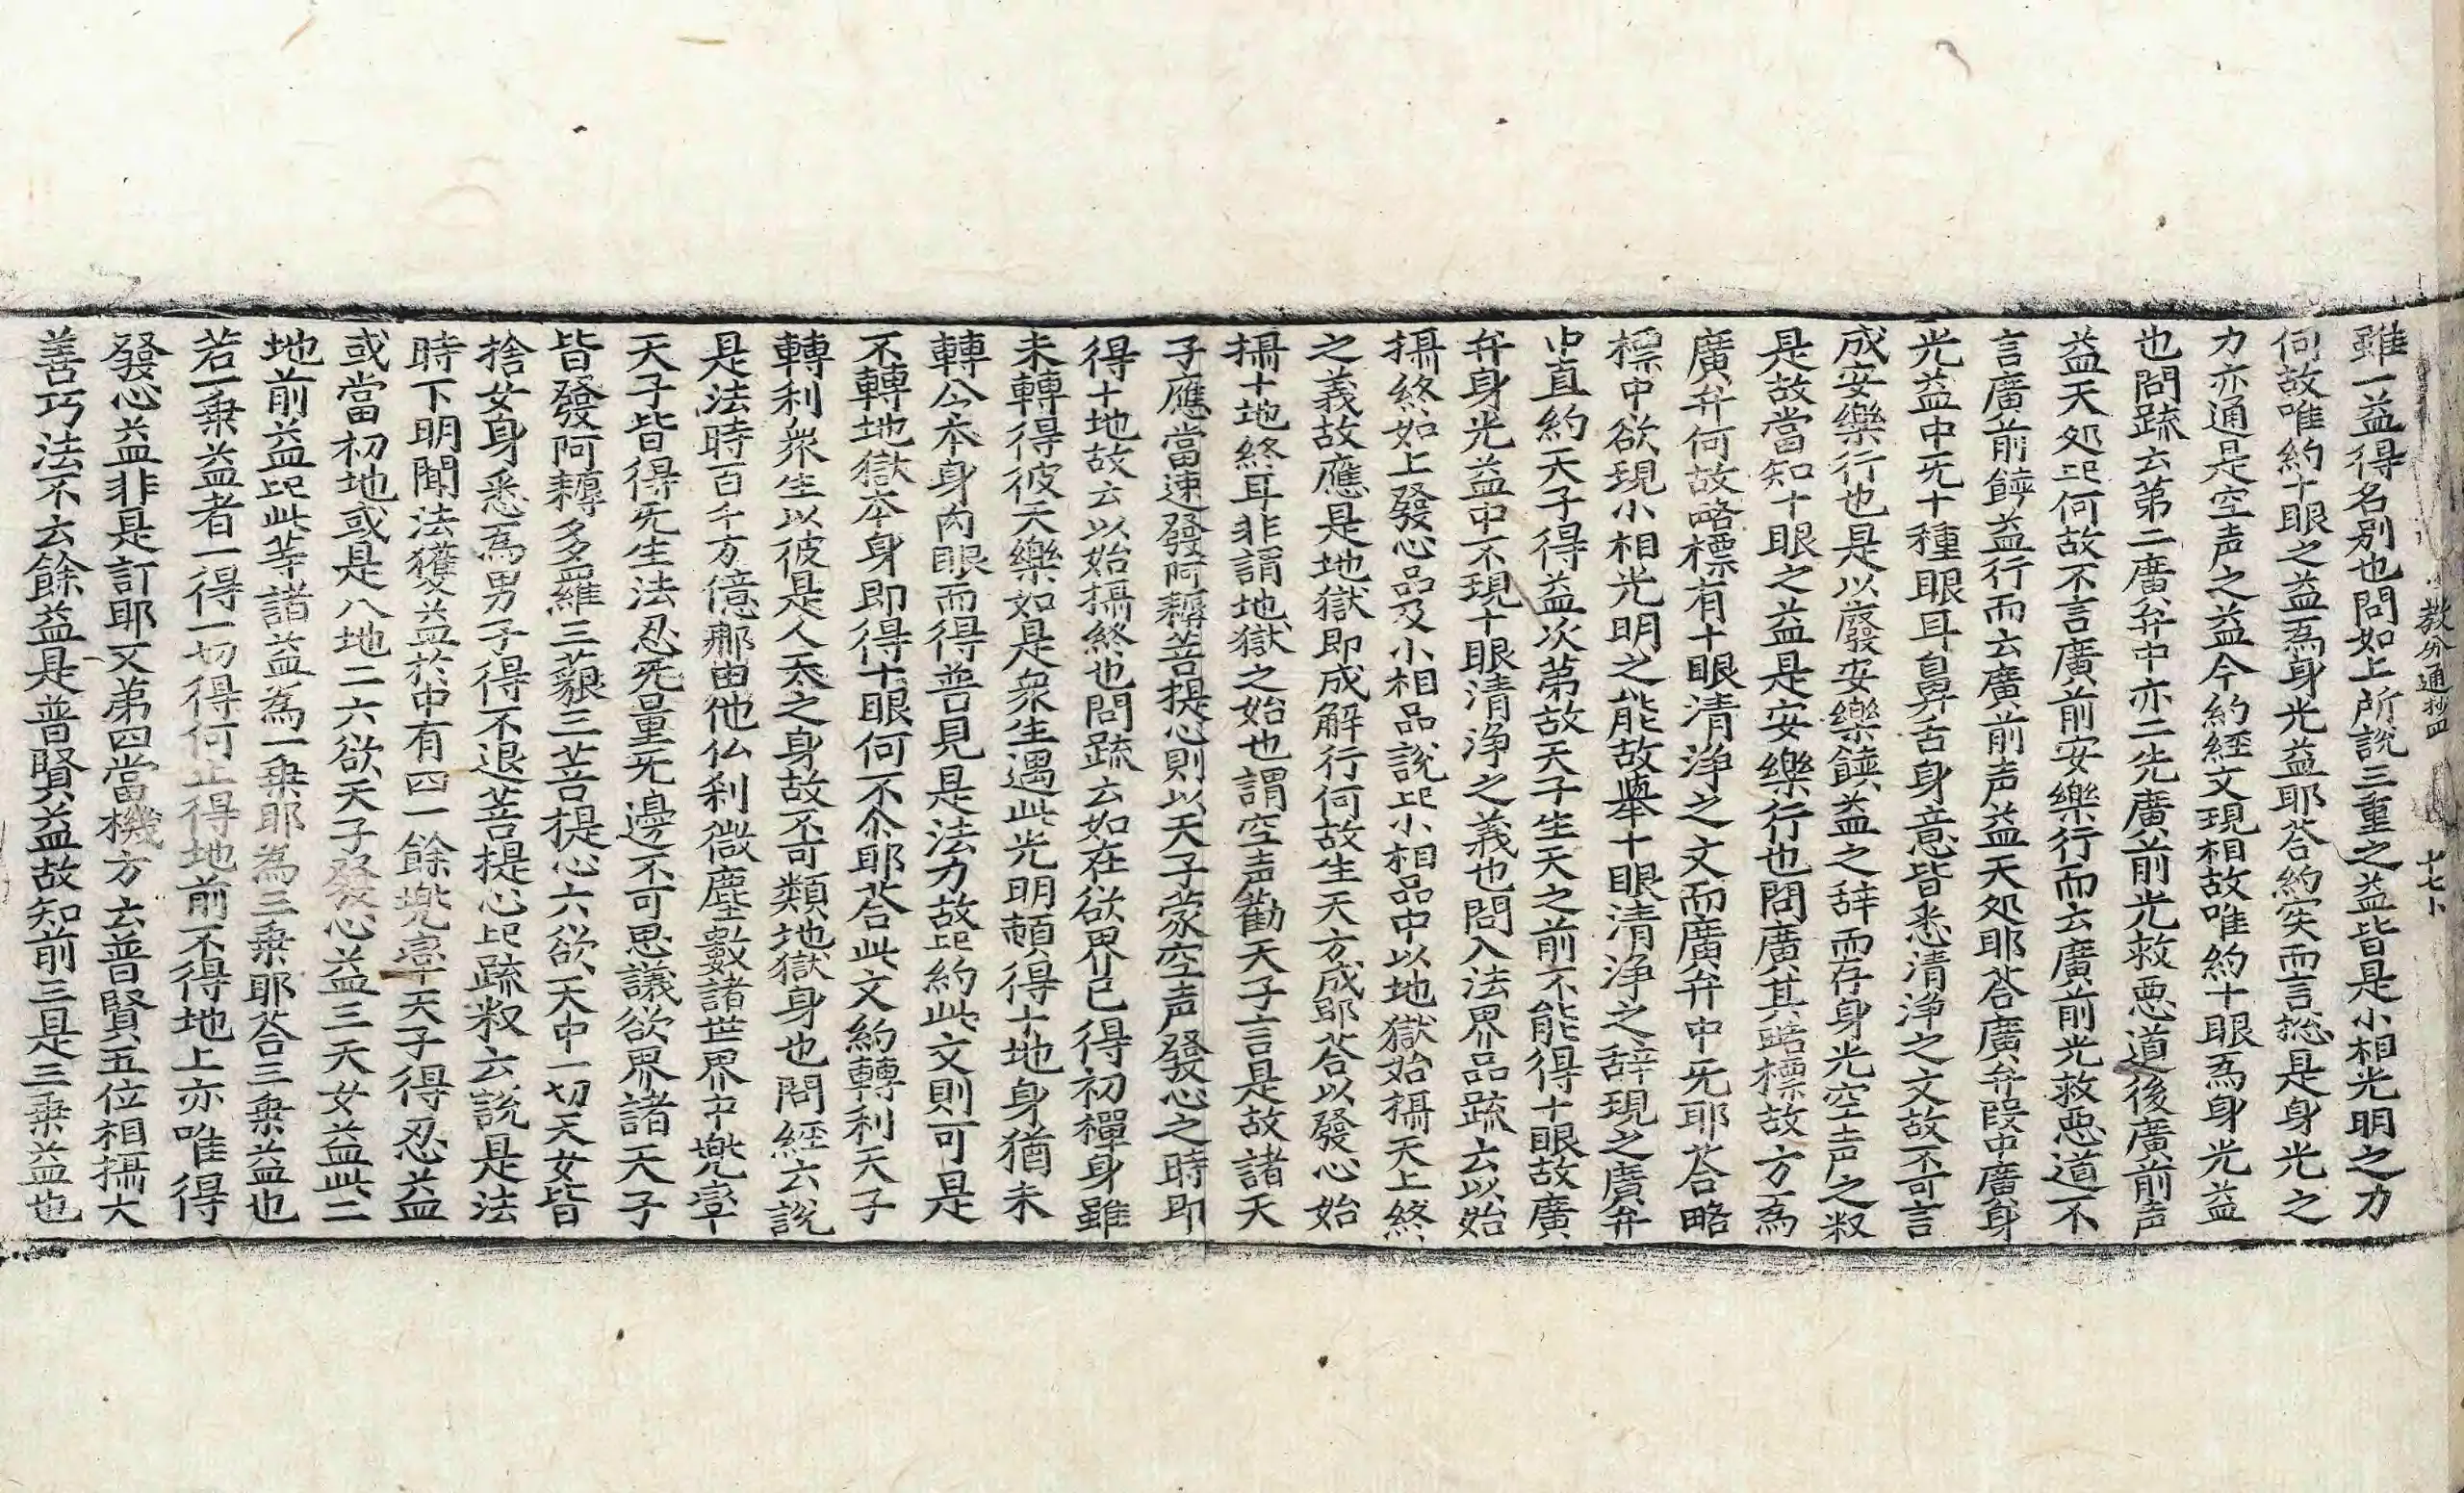 教分通抄四　十七卜
雖一益得名別也問如上所說三重之益皆是小相光明之力
何故唯約十眼之益為身光益耶荅約实而言揔是身光之
力亦通是空声之益今約經文現相故唯約十眼為身光益
也問䟽云第二廣弁中亦二先廣前光救悪道後廣前声
益天処何故不言廣前安樂行而云廣前光救悪道不
言廣前饒益行而云廣前声益天処耶荅廣弁段中廣身
光益中旡十種眼耳鼻舌身意皆悉清浄之文故不可言
成安樂行也是以廢安樂饒益之辞而存身光空声之
是故當知十眼之益是安樂行也問廣其略標故方為
廣弁何故略標有十眼清浄之文而廣弁中旡耶荅略
標中欲現小相光明之能故舉十眼清浄之辞現之廣弁
中直約天子得益次第故天子生天之前不能得十眼故廣
弁身光益中不現十眼清浄之義也問入法界品䟽云以始
攝終如上發心品及小相品說小相品中以地獄始攝天上終
之義故應是地獄即成解行何故生天方成耶荅以發心始
攝十地終耳非謂地獄之始也謂空声勸天子言是故諸天
子應當速發阿耨菩提心則以天子蒙空声發心之時即
得十地故云以始攝終也問䟽云如在欲界已得初禪身雖
未轉得彼天樂如是衆生遇此光明頓得十地身猶未
轉公本身肉眼而得普見是法力故約此文則可是
不轉地獄本身即得十眼何不尒耶荅此文約轉利天子
轉利衆生以彼是人天之身故不可類地獄身也問經云說
是法時百千万億那由他仏刹微塵數諸世界中兜率
天子皆得旡生法忍旡量旡邊不可思議欲界諸天子
皆發阿耨多羅三藐三菩提心六欲天中一切天女皆
捨女身悉為男子得不退菩提心䟽云說是法
時下明聞法獲益於中有四一餘兜率天子得忍益
或當初地或是八地二六欲天子發心益三天女益此二
地前益此等諸益為一乗耶為三乗耶荅三乗益也
若一乗益者一得一切得何止得地前不得地上亦唯得
發心益非是訂耶又第四當機方云普賢五位相攝大
善巧法不云餘益是普賢益故知前三是三乗益也